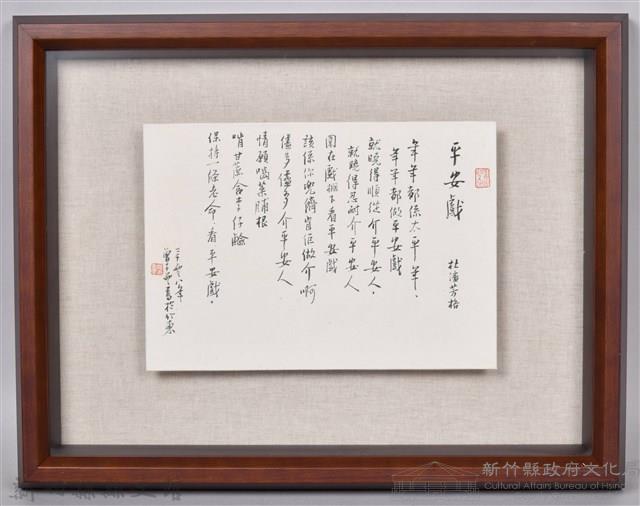 平安戲
杜潘芳格
年年都係太平年，
年年都做平安戲
就曉得順從介平安人，
就曉得忍耐介平安人
圍在戲棚下看平安戲
該係你兜儕肯佢做介啊
儘多儘多介平安人
情願嚙菜脯根
啃甘蔗含李仔鹹
保持一條老命看平安戲。
二千零八年
於竹東
新竹縣政府文化局
Cultural Affairs Bureau of Hsinc